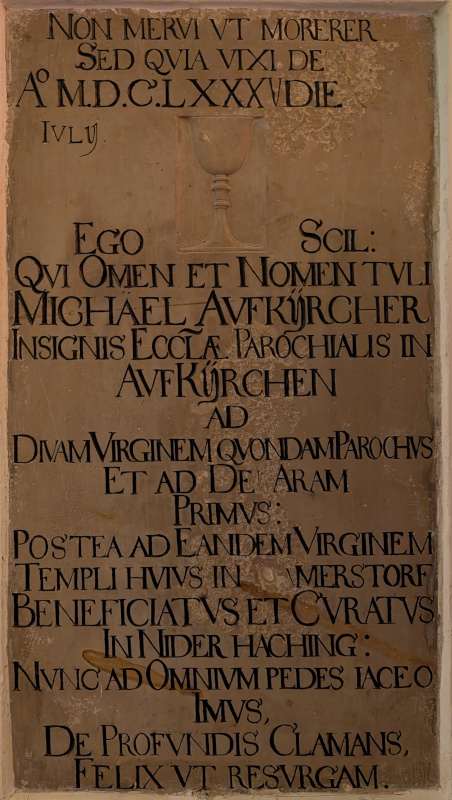 NON MERVI VT MORERER
SED QVIA VIXI DE
Aº M.D.C.LXXXV DIE
IVLIJ
EGO SCIL:
QVI OMEN ET NOMEN TVLI
MICHÄEL AVFKIJRCHER
INSIGNIS ECCLÆ PAROCHIALIS IN
AVFKIJRCHEN
AD
DIVAM VIRGINEM QVONDAM PAROCHVS
ET AD DEI ARAM
PRIMVS:
POSTEA AD EANDEM VIRGINEM
TEMPLI HVIVS IN
BENEFICIATVS ET CVRATVS
IN NIDER HACHING:
NVNC AD OMNIVM PEDES IACEO
IMVS,
DE PROFVNDIS CLAMANS,
FELIX VT RESVRGAM.